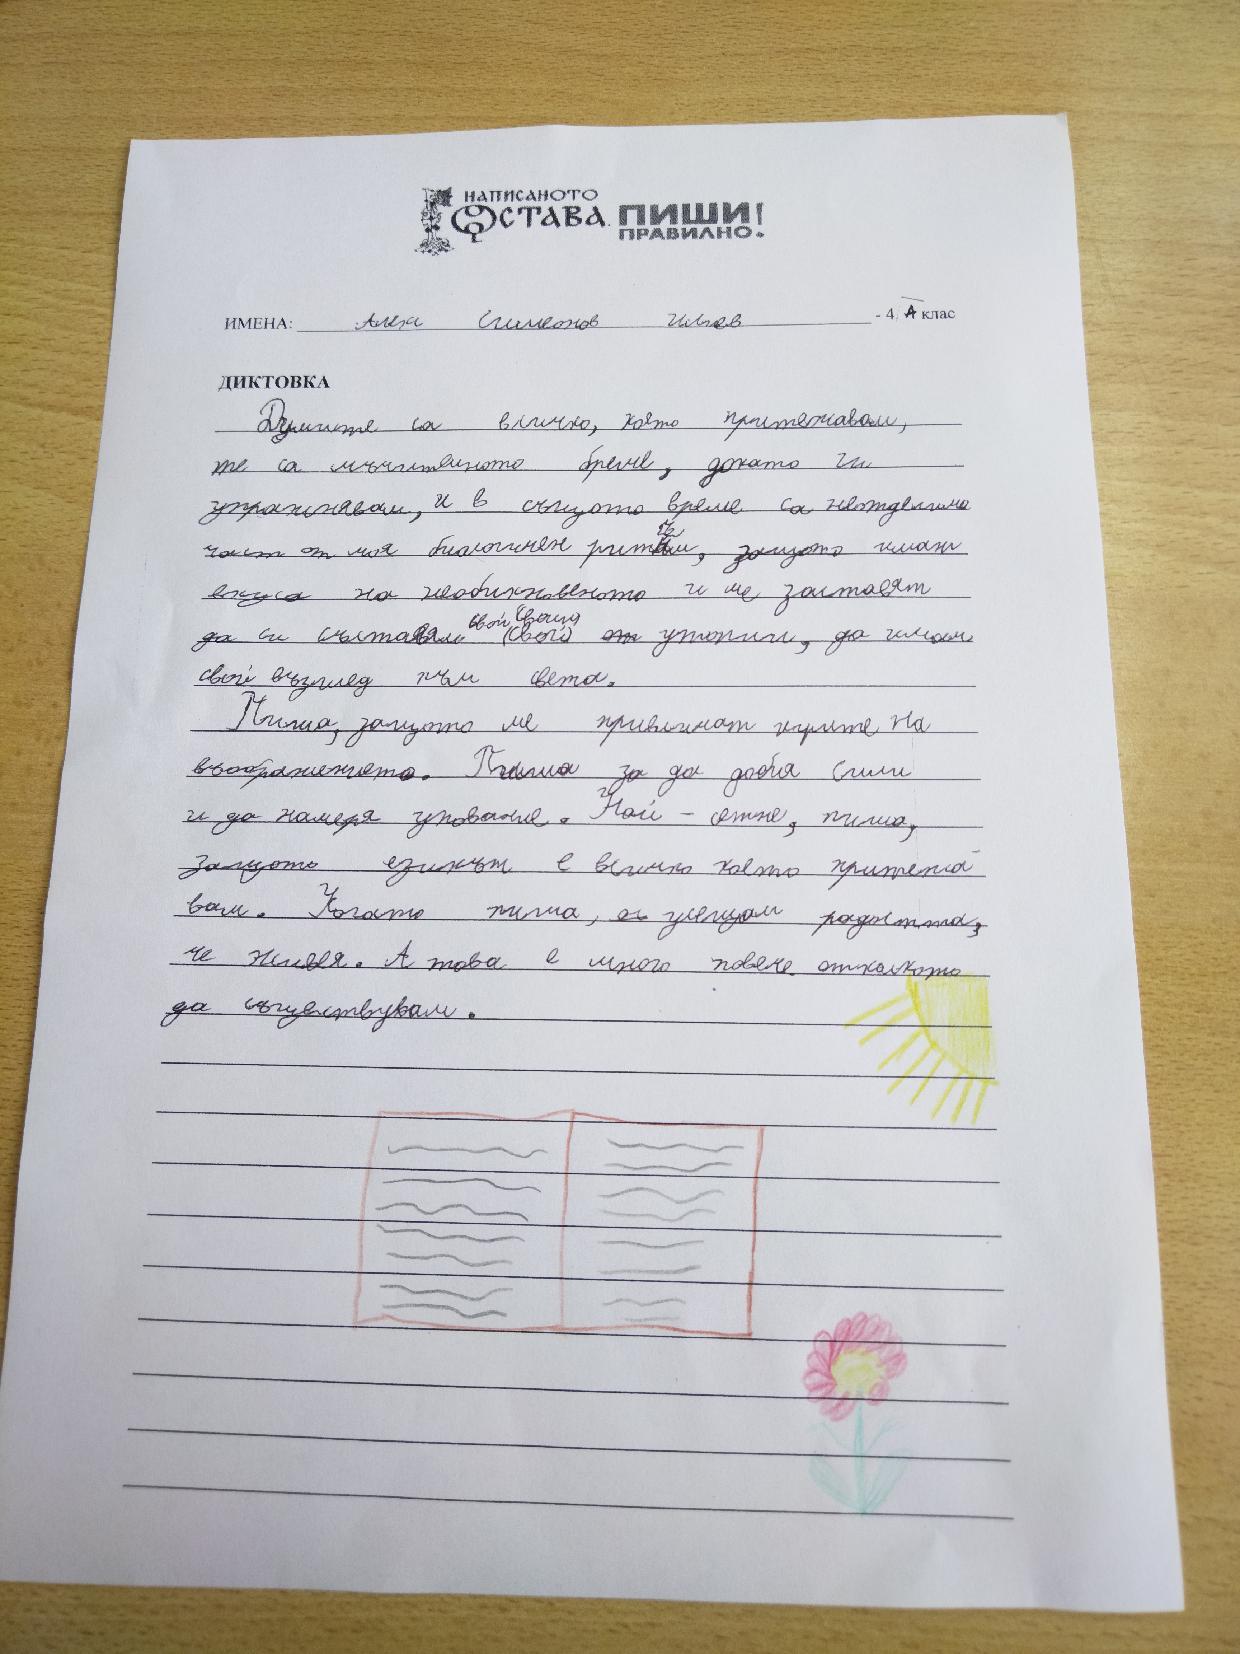 НАПИСАНОТО
ОСТАВА. ПИШИ
ПРАВИЛНО!
ИМЕНА: Алекс Симеонов Илиев - 4 А клас
ДИКТОВКА
Думите са всичко, което притежавам,
те са мъчителното бреме, докато ги
упражнявам, и в същото време са неотделима
част от моя биологичен ритъм, защото имат
вкуса на необикновеното и ме заставят
да си съставям свой свои утопии, да имам
свой възглед към света.
Пиша, защото ме привличат игрите на
въображението. Пиша за да добия сили
и да намеря упование. Най - сетне, пиша,
защото езикът е всичко което притежа-
вам. Когато пиша, усещам радостта,
че живея. А това е много повече отколкото
да съществувам.